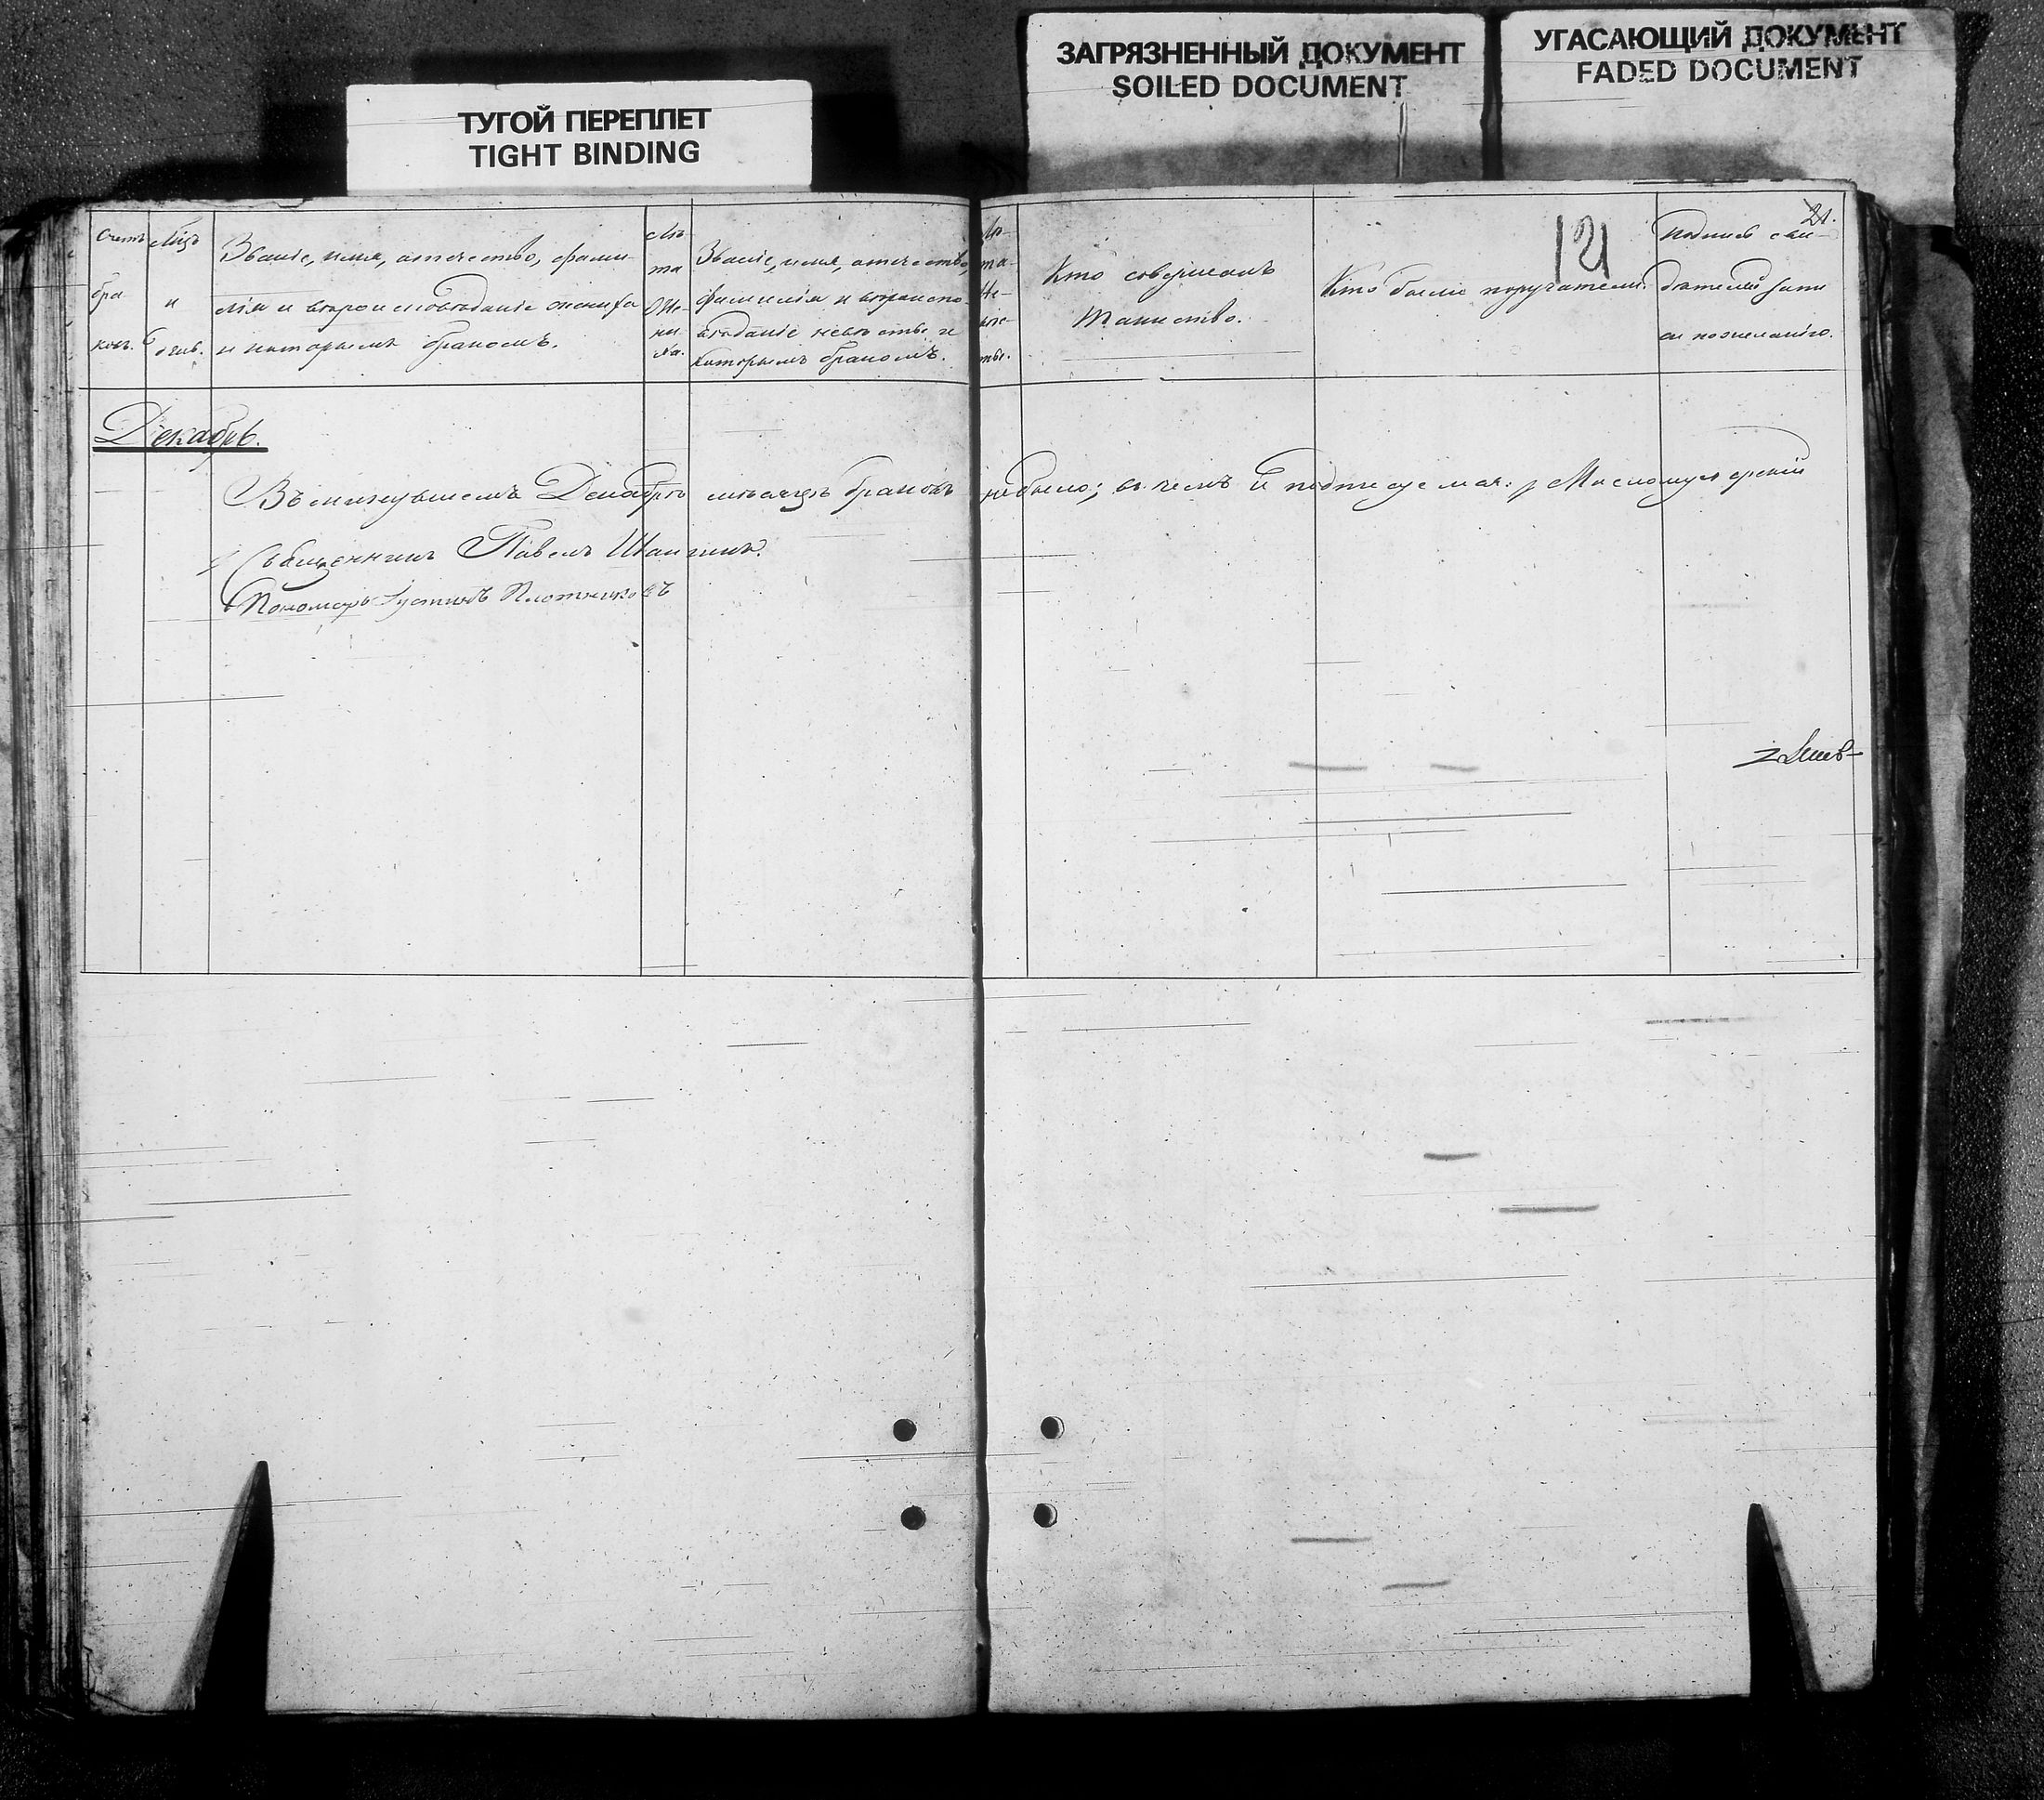 ТУГОЙ ПЕРЕПЛЕТ
TIGHT BINDING
ЗАГРЯЗНЕННЫЙ ДОКУМЕНТ
SOILED DOCUMENT
УГАСАЮЩИЙ ДОКУМЕНТ
FADED DOCUMENT
21.
121
Счетъ
бра
ковъ.
Мѣсъ
и
день.
Званіе, имя, отчество, фами-
лія и вѣроисповѣданіе жениха
и которымъ бракомъ.
Лѣ-
та
Же-
ни-
ха.
Званіе, имя, отчество,
фамилія и вѣроиспо-
вѣданіе невѣсты и
которымъ бракомъ.
Лѣ-
та
Не-
вѣс-
ты.
Кто совершалъ
Таинство.
Кто были поручатели.
Подпись сви-
дѣтелей запи
си по желанію.
Декабрь.
Въ минувшемъ Декабрѣ мѣсяцѣ браковъ небыло; въ чемъ и подписуемся:
Священникъ Павелъ
Пономарь Іустинъ Плотниковъ